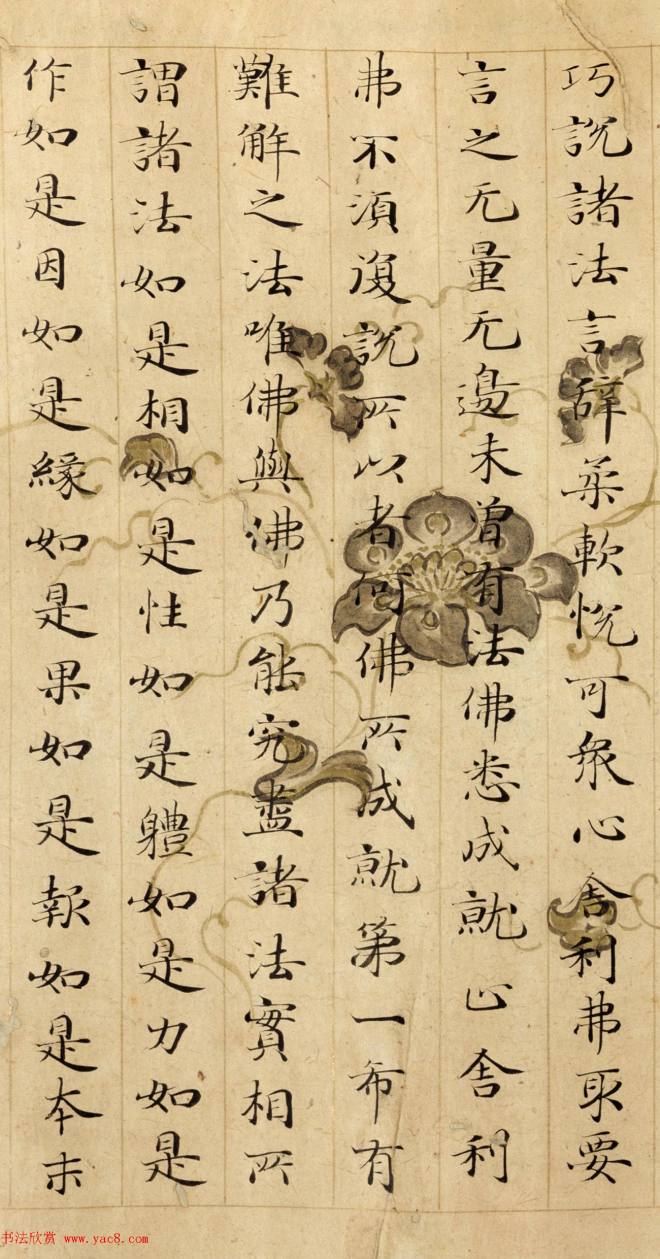 巧說諸法言辭柔軟悅可衆心舍利弗取要
言之无量无邊未曾有法佛悉成就止舍利
弗不須復說所以者何佛所成就第一布有
難解之法唯佛與佛乃能究盡諸法實相所
謂諸法如是相如是性如是體如是力如是
作如是因如是緣如是果如是報如是本末
书法欣赏 www.yac8.com